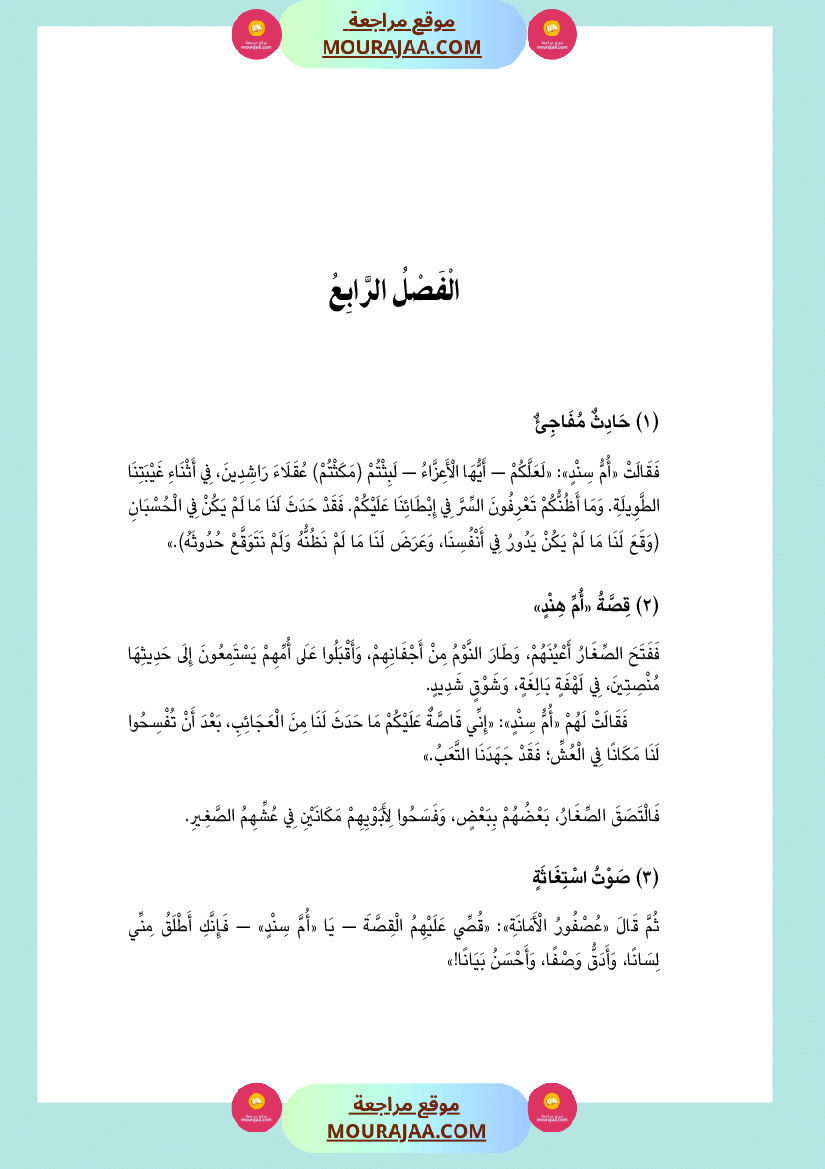 موقع مراجعة
MOURAJAA.COM
الْفَصْلُ الرَّابِعُ
(١) حَادِثٌ مُفَاجِئٌ
فَقَالَتْ «أُمُّ سِنْدٍ»: «لَعَلَّكُمْ — أَيُّهَا الْأَعِزَّاءُ — لَبِثْتُمْ (مَكَثْتُمْ) عُقَلَاءَ رَاشِدِينَ، فِي أَثْنَاءِ غَيْبَتِنَا
الطَّوِيلَةِ. وَمَا أَظُنُّكُمْ تَعْرِفُونَ السِّرَّ فِي إِبْطَائِنَا عَلَيْكُمْ. فَقَدْ حَدَثَ لَنَا مَا لَمْ يَكُنْ فِي الْحُسْبَانِ
(وَقَعَ لَنَا مَا لَمْ يَكُنْ يَدُورُ فِي أَنْفُسِنَا، وَعَرَضَ لَنَا مَا لَمْ نَظُنُّهُ وَلَمْ نَتَوَقَّعْ حُدُوثَهُ).»
(٢) قِصَّةُ «أُمِّ هِنْدٍ»
فَفَتَحَ الصِّغَارُ أَعْيُنَهُمْ، وَطَارَ النَّوْمُ مِنْ أَجْفَانِهِمْ، وَأَقْبَلُوا عَلَى أُمِّهِمْ يَسْتَمِعُونَ إِلَى حَدِيثِهَا
مُنْصِتِينَ، فِي لَهْفَةٍ بَالِغَةٍ، وَشَوْقٍ شَدِيدٍ.
فَقَالَتْ لَهُمْ «أُمُّ سِنْدٍ»: «إِنِّي قَاصَّةٌ عَلَيْكُمْ مَا حَدَثَ لَنَا مِنَ الْعَجَائِبِ، بَعْدَ أَنْ تُفْسِحُوا
لَنَا مَكَانًا فِي الْعُشِّ؛ فَقَدْ جَهَدَنَا التَّعَبُ.»
فَالْتَصَقَ الصِّغَارُ، بَعْضُهُمْ بِبَعْضٍ، وَفَسَحُوا لِأَبَوَيْهِمْ مَكَانَيْنِ فِي عُشِّهِمُ الصَّغِيرِ.
(٣) صَوْتُ اسْتِغَاثَةٍ
ثُمَّ قَالَ «عُصْفُورُ الْأَمَانَةِ»: «قُصِّي عَلَيْهِمُ الْقِصَّةَ — يَا «أُمَّ سِنْدٍ» — فَإِنَّكِ أَطْلَقُ مِنِّي
لِسَانًا، وَأَدَقُّ وَصْفًا، وَأَحْسَنُ بَيَانًا!»
موقع مراجعة
MOURAJAA.COM